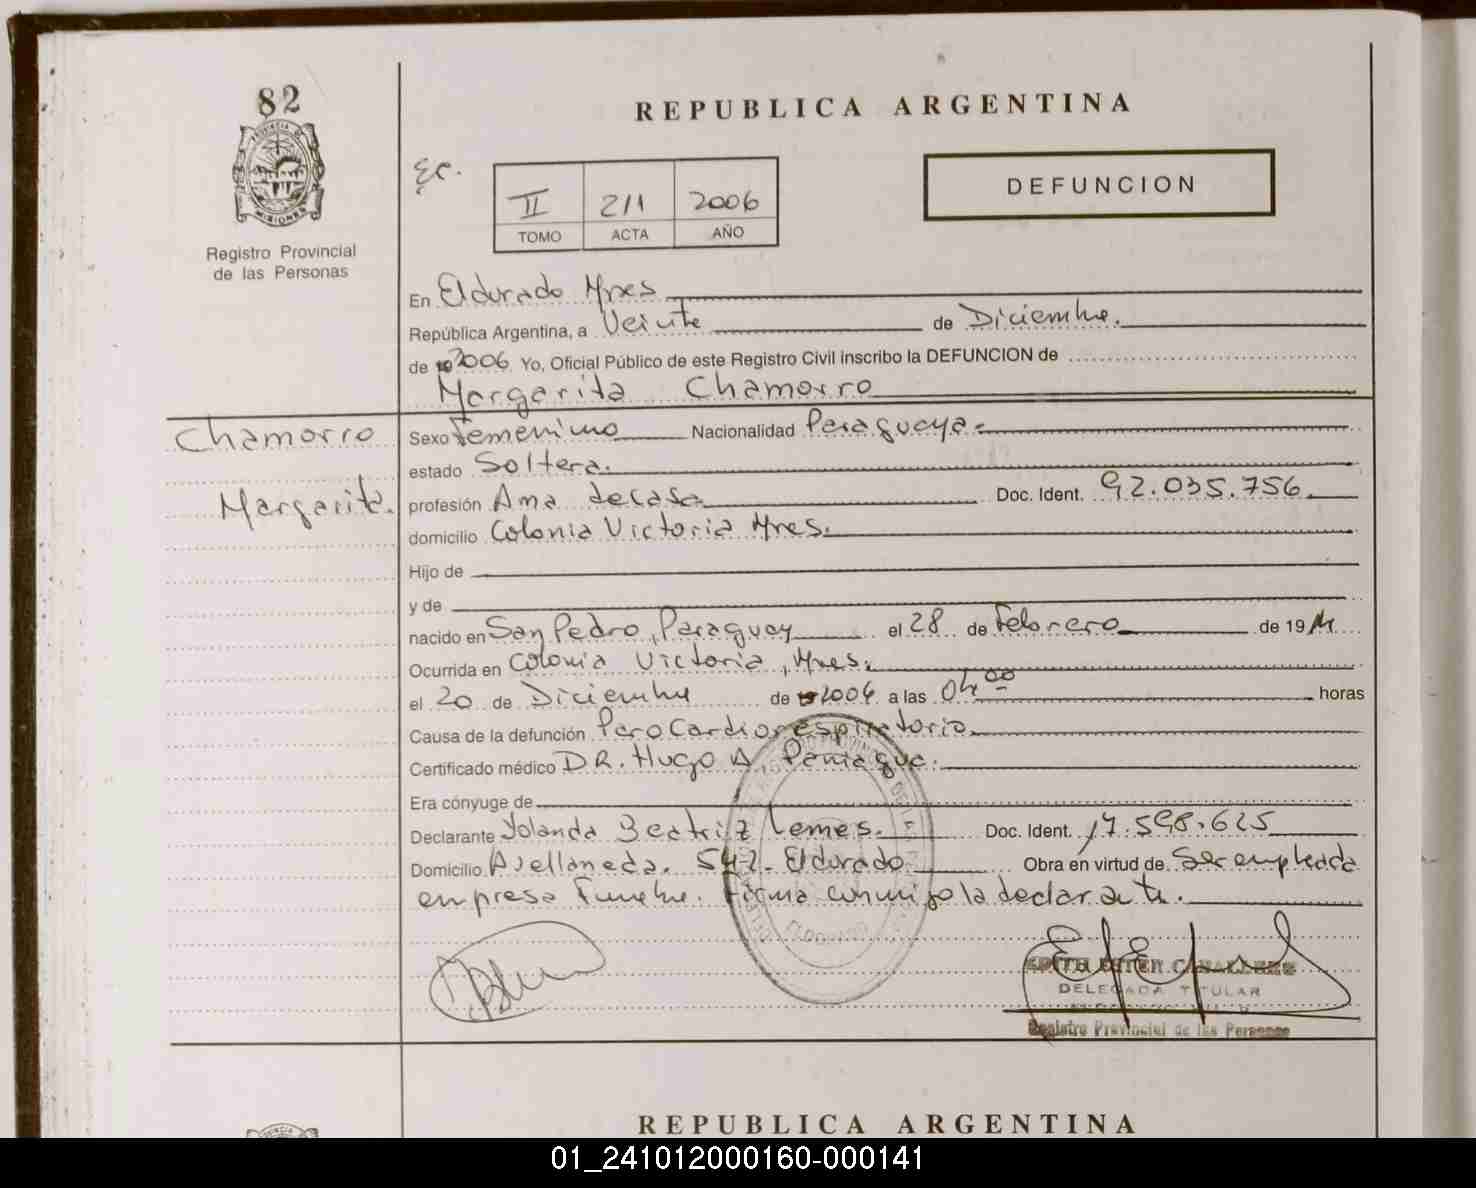 82
REPUBLICA ARGENTINA
PROVINCIA D
MISIONES
Registro Provincial
de las Personas
II 211 2006
TOMO ACTA AÑO
DEFUNCION
En Eldorado Mnes
República Argentina, a Veinte de Diciembre.
de 2006 Yo, Oficial Público de este Registro Civil inscribo la DEFUNCION de
Margarita Chamorro
Chamorro
Margarita.
Sexo Femenino Nacionalidad Paraguaya.
estado Soltera.
profesión Ama de Casa Doc. Ident. 92.035.756.
domicilio Colonia Victoria Mnes.
Hijo de
y de
nacido en San Pedro, Paraguay el 28 de Febrero de 19
Ocurrida en Colonia Victoria, Mnes.
el 20 de Diciembre de 2006 a las 04 00 horas
Causa de la defunción Paro Cardiorespiratorio.
Certificado médico DR. Hugo A Paniagua.
Era cónyuge de
Declarante Yolanda Beatriz Lemes. Doc. Ident. 17.598.625
Domicilio Avellaneda. 542- Eldorado Obra en virtud de Ser empleada
empresa Funebre. Firma conmigo la declarante.
ELDORADO
EDITH ESTER CABALLERO
DELEGADA TITULAR
Registro Provincial de las Personas
REPUBLICA ARGENTINA
01_241012000160-000141